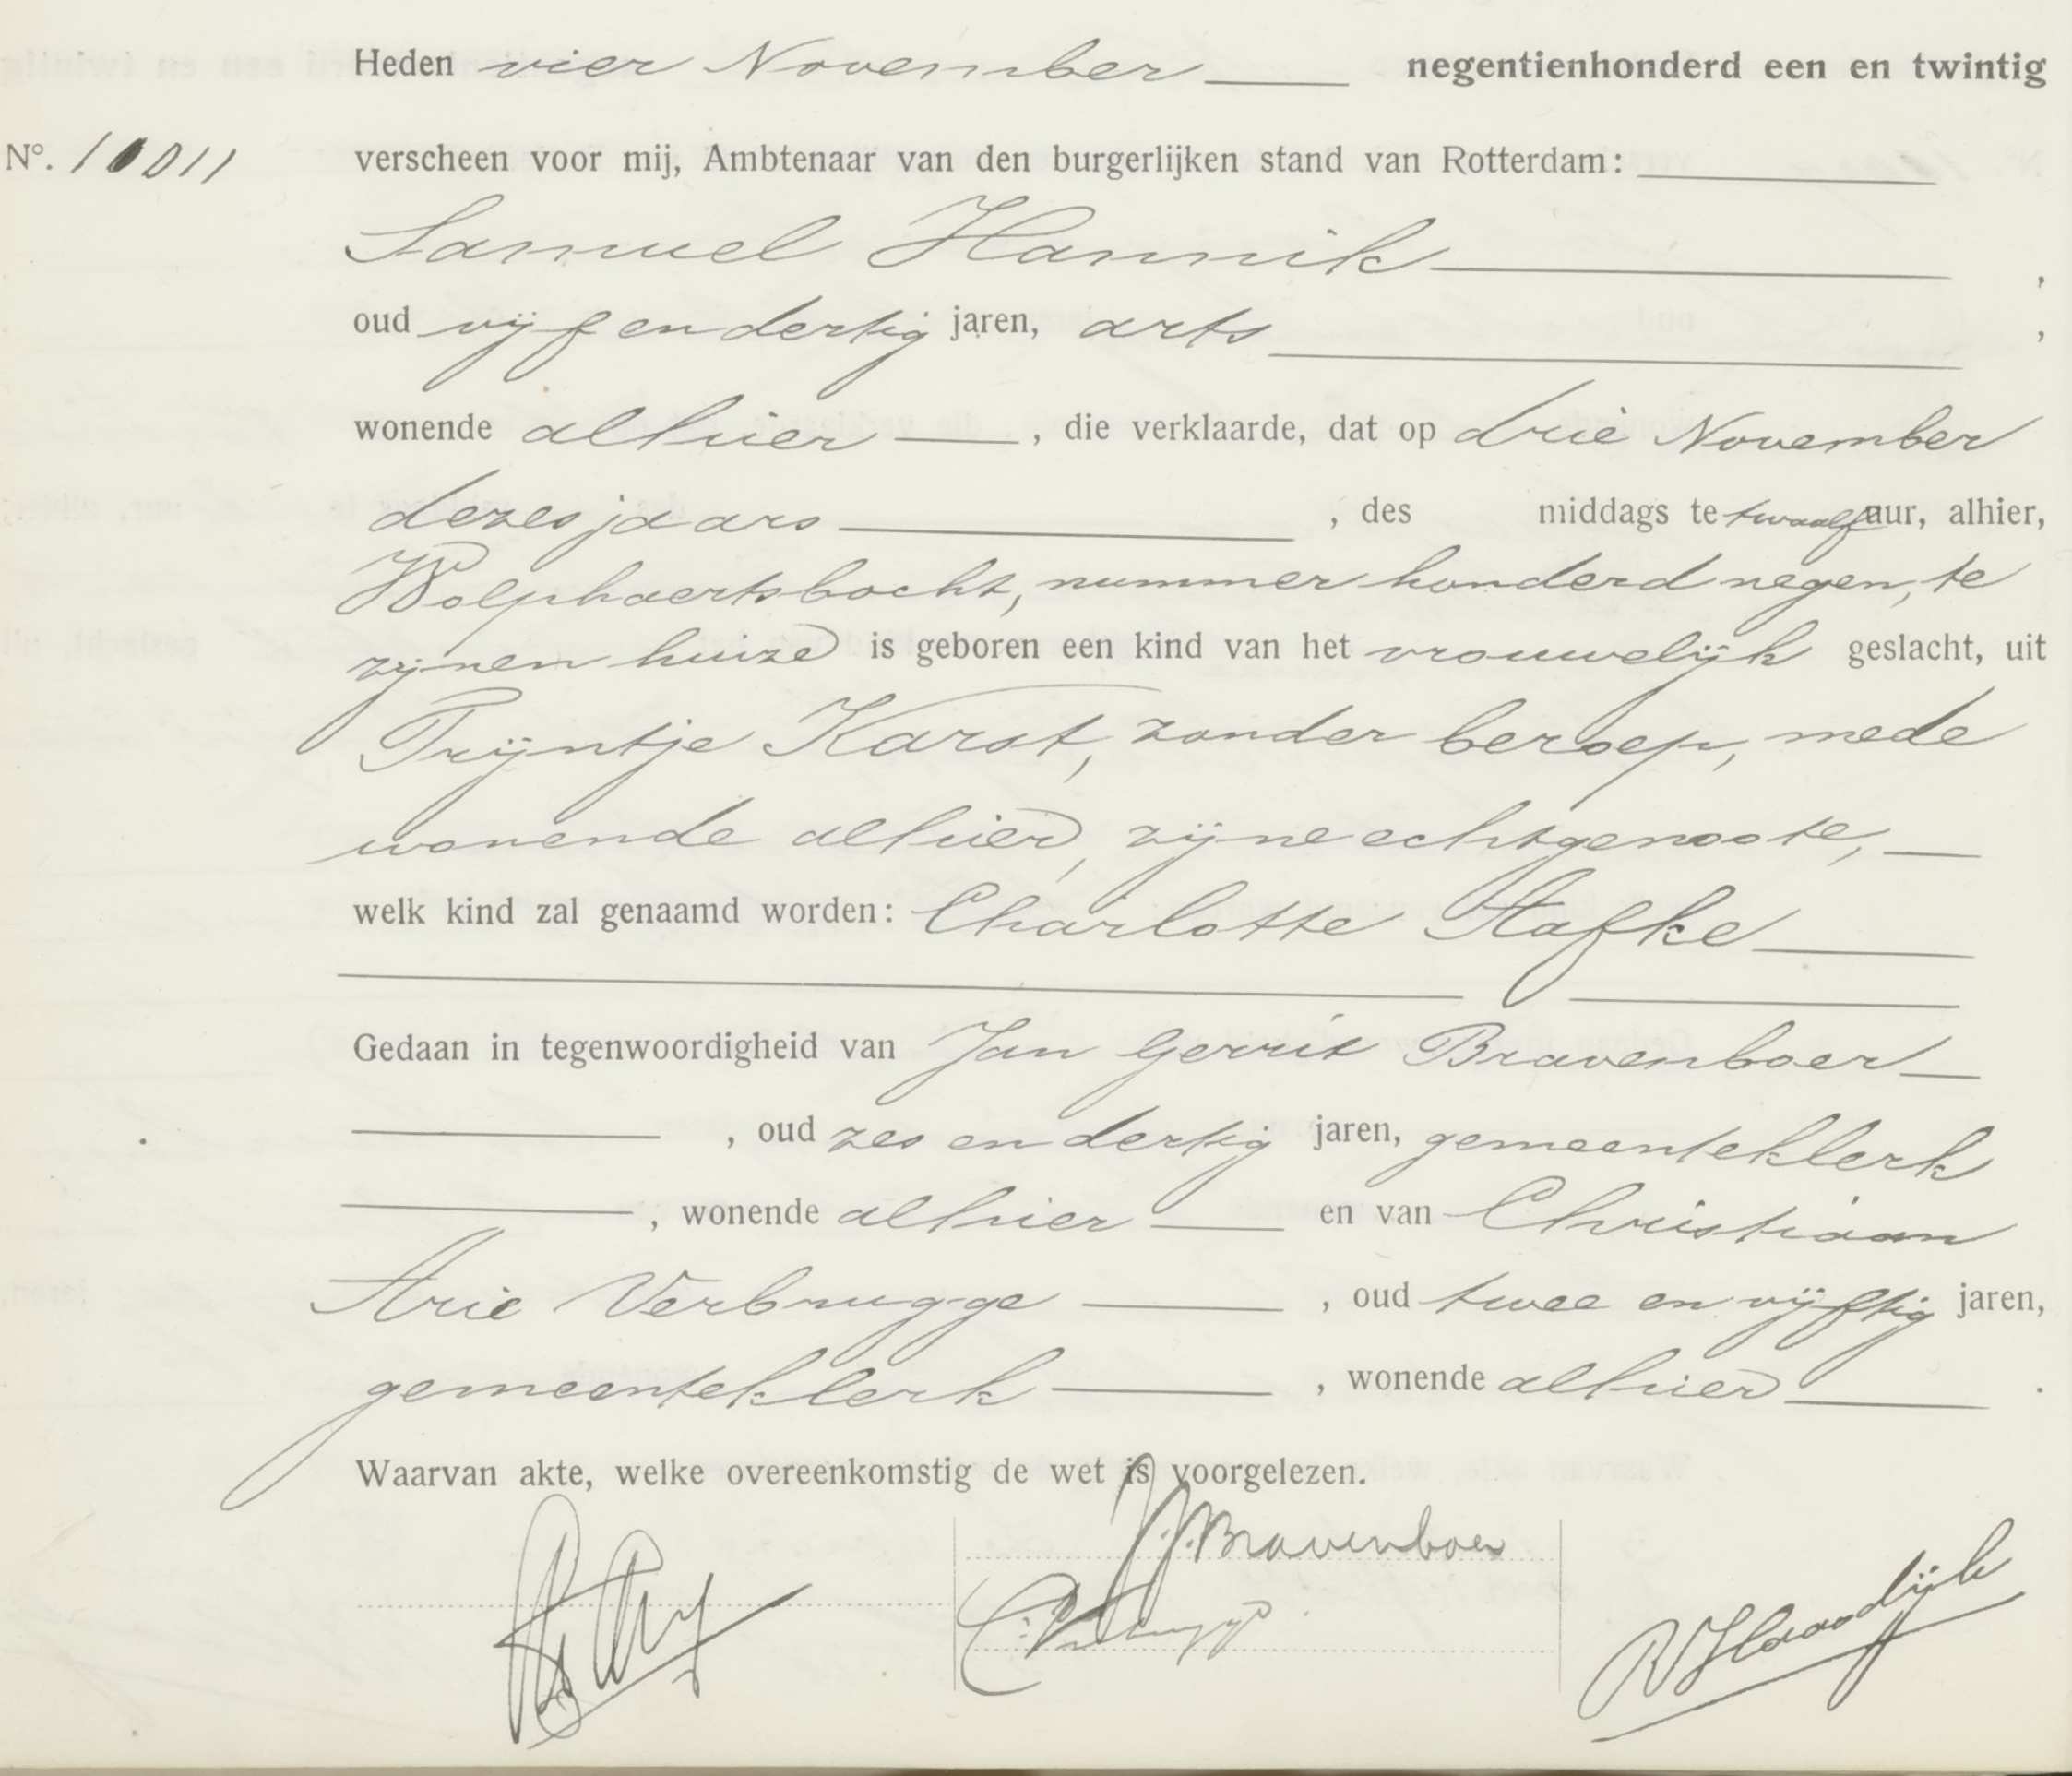 Heden vier November negentienhonderd een en twintig
No. 10011 verscheen voor mij, Ambtenaar van den burgerlijken stand van Rotterdam:
Samuel Hannik ,
oud vijf en dertig jaren, arts ,
wonende alhier , die verklaarde, dat op drie November
dezes jaars , des middags te twaalf uur, alhier,
Wolphaertsbocht, nummer honderd negen, te
zijnen huize is geboren een kind van het vrouwelijk geslacht, uit
Trijntje Karst, zonder beroep, mede
wonende alhier, zijne echtgenoote,
welk kind zal genaamd worden: Charlotte Aafke
Gedaan in tegenwoordigheid van Jan Gerrit Bravenboer
, oud zes en dertig jaren, gemeenteklerk
, wonende alhier en van Christiaan
Arie Verbrugge , oud twee en vijftig jaren,
gemeenteklerk , wonende alhier .
Waarvan akte, welke overeenkomstig de wet is voorgelezen.
J.G. Bravenboer